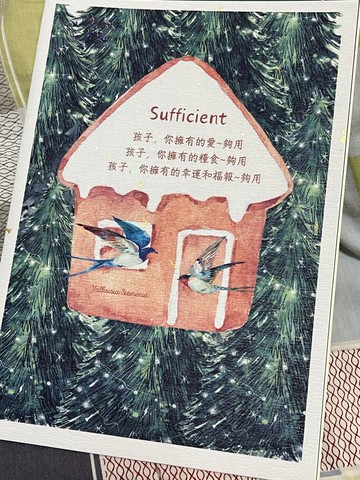 Sufficient
孩子，你擁有的愛~夠用
孩子，你擁有的糧食~夠用
孩子，你擁有的幸運和福報~夠用